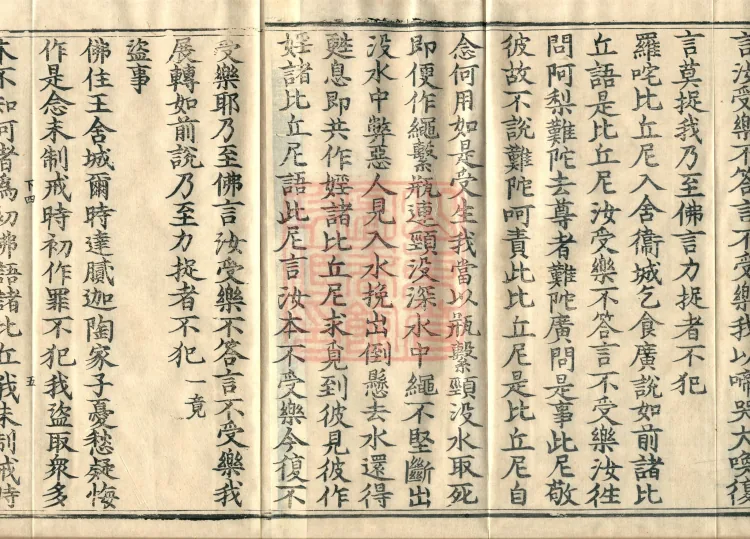 言汝受樂不答言不受樂我以啼哭大喚復
言莫捉我乃至佛言力捉者不犯
羅咤比丘尼入舍衞城乞食廣說如前諸比
丘語是比丘尼汝受樂不答言不受樂汝往
問阿梨難陀去尊者難陀廣問是事此尼敬
彼故不說難陀呵責此比丘尼是比丘尼自
念何用如是受生我當以瓶繫頸没水取死
即便作繩繫瓶連頸没深水中繩不堅斷出
没水中弊惡人見入水挽出倒懸去水還得
甦息即共作婬諸比丘尼求覓到彼見彼作
婬諸比丘尼語此尼言汝本不受樂今復不
受樂耶乃至佛言汝受樂不答言不受樂我
展轉如前說乃至力捉者不犯 一竟
盜事
佛住王舍城爾時達膩迦陶家子憂愁疑悔
作是念未制戒時初作罪不犯我盜取衆多
下四 五
木不知何者為初佛語諸比丘我未制戒時